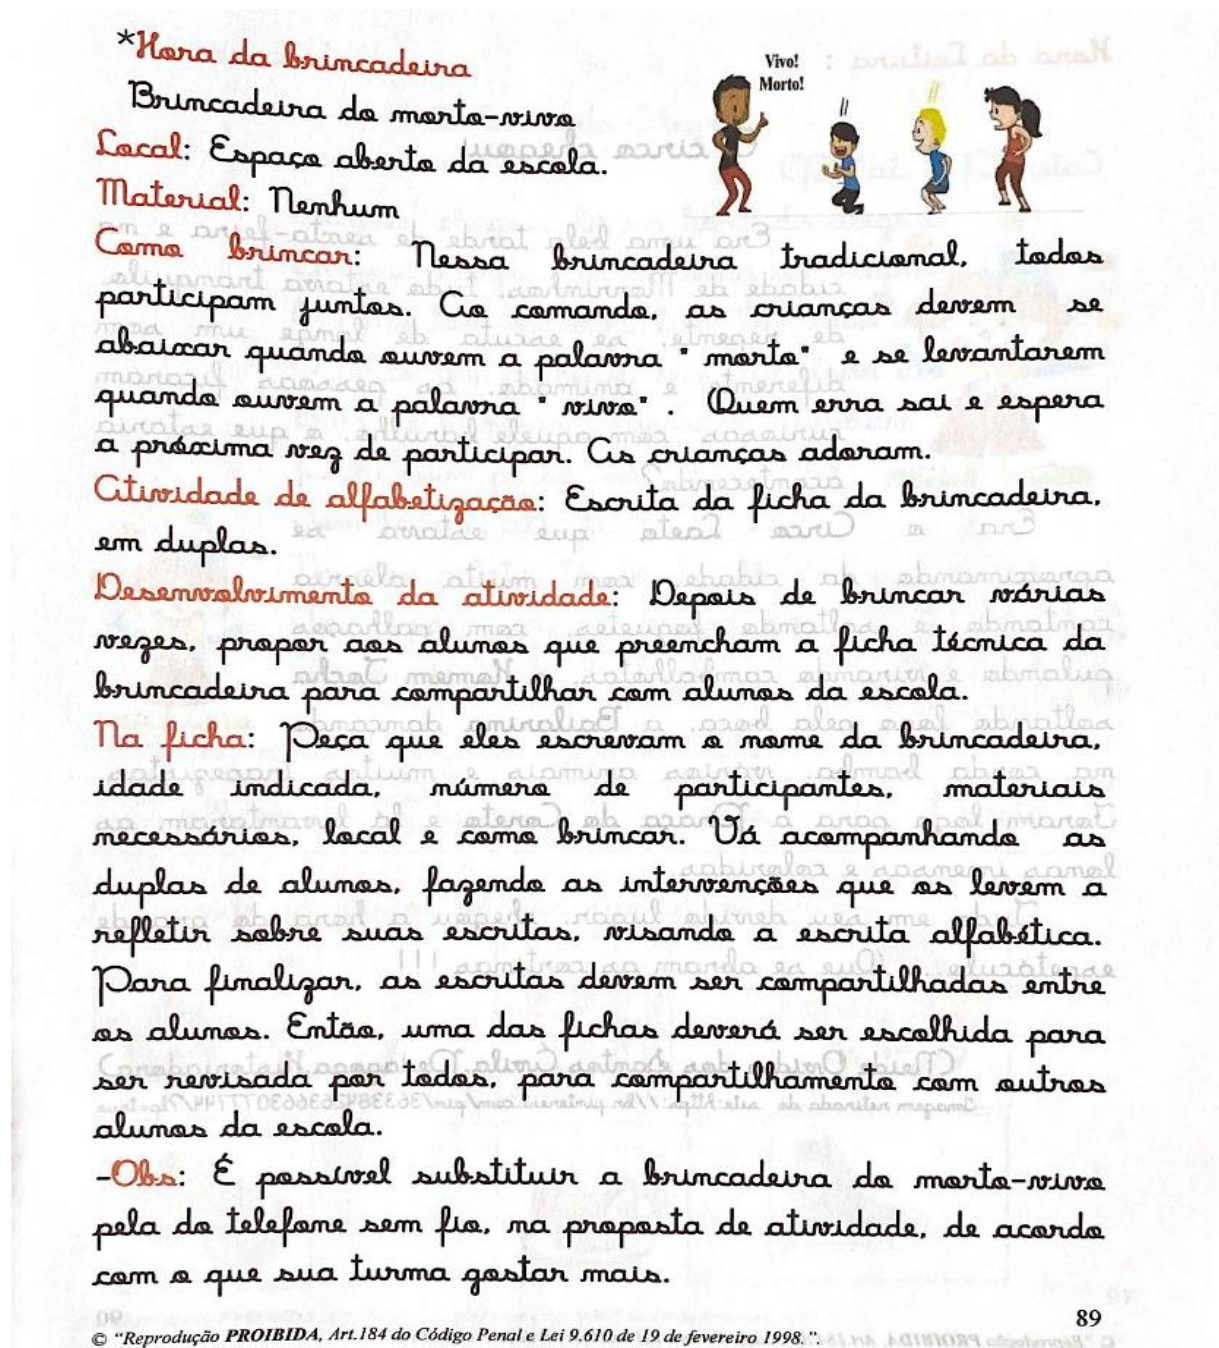 *Hora da brincadeira
Vivo!
Morto!
Brincadeira do morto-vivo
Local: Espaço aberto da escola.
Material: Nenhum
Como brincar: Nessa brincadeira tradicional, todos
participam juntos. Ao comando, as crianças devem se
abaixar quando ouvem a palavra " morto" e se levantarem
quando ouvem a palavra " vivo" . Quem erra sai e espera
a próxima vez de participar. As crianças adoram.
Atividade de alfabetização: Escrita da ficha da brincadeira,
em duplas.
Desenvolvimento da atividade: Depois de brincar várias
vezes, propor aos alunos que preencham a ficha técnica da
brincadeira para compartilhar com alunos da escola.
Na ficha: Peça que eles escrevam o nome da brincadeira,
idade indicada, número de participantes, materiais
necessários, local e como brincar. Vá acompanhando as
duplas de alunos, fazendo as intervenções que os levem a
refletir sobre suas escritas, visando a escrita alfabética.
Para finalizar, as escritas devem ser compartilhadas entre
os alunos. Então, uma das fichas deverá ser escolhida para
ser revisada por todos, para compartilhamento com outros
alunos da escola.
-Obs: É possível substituir a brincadeira do morto-vivo
pela do telefone sem fio, na proposta de atividade, de acordo
com o que sua turma gostar mais.
89
© "Reprodução PROIBIDA, Art.184 do Código Penal e Lei 9.610 de 19 de fevereiro 1998.".